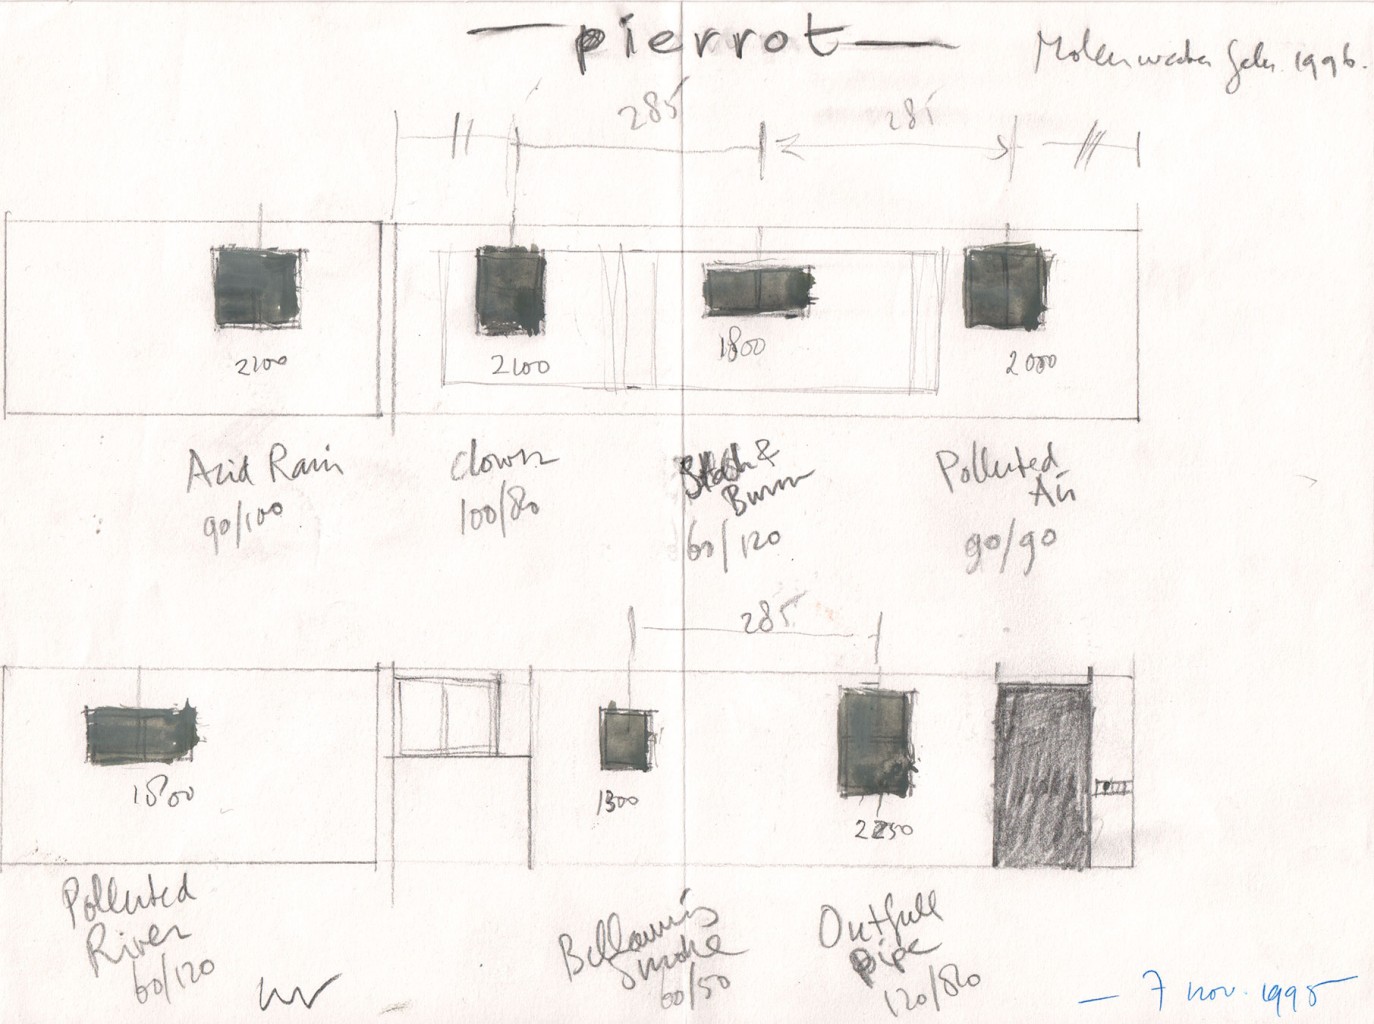 — pierrot —
1996.
285 285
2200 2100 1800 2000
Acid Rain
90/100
Clown
100/80
&
Burn
60/120
Polluted
Air
90/90
285
1800 1300 2250
Polluted
River
60/120
Smoke
60/50
Outfall
Pipe
120/80
— 7 nov. 1995